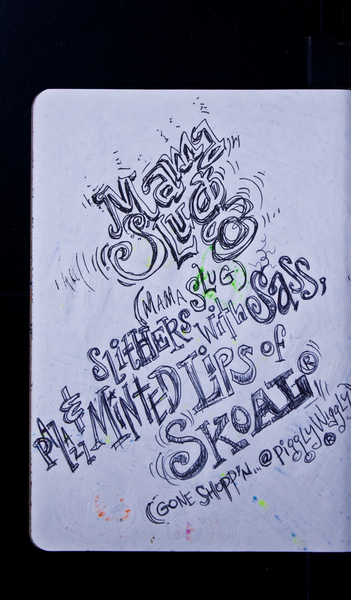 Mama
Slug
(MAMA SLUG)
SLITHERS with Sass,
& MINTED LIPS OF
SKOAL®
(GONE SHOPP'N...@ PiGGLyWiGGly®)